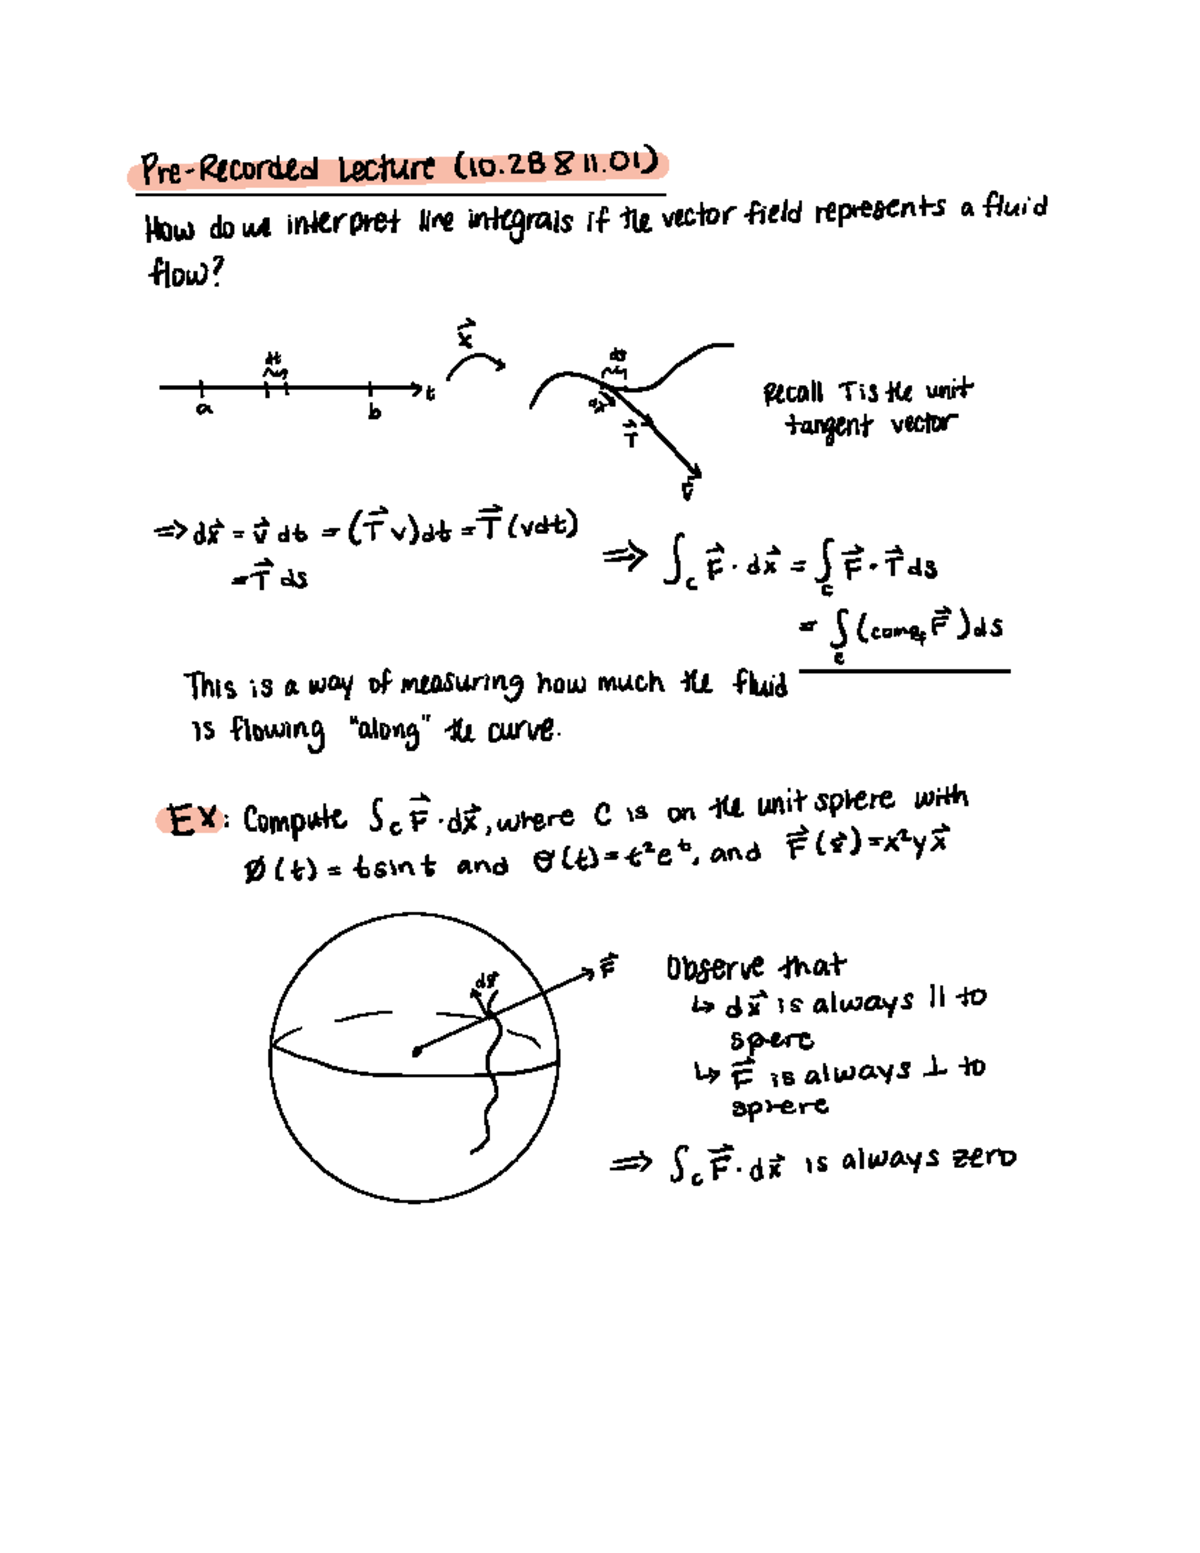 Pre-Recorded Lecture (10.28 & 11.01)
How do we interpret line integrals if the vector field represents a fluid
flow?
dt
a
b
t
x⃗
ds
dx⃗
T⃗
v⃗
Recall T is the unit
tangent vector
⇒ dx⃗ = v⃗ dt = (T⃗ v)dt = T⃗ (vdt)
= T⃗ ds
⇒ ∫_C F⃗ · dx⃗ = ∫_C F⃗ · T⃗ ds
= ∫_C (comp_T F⃗) ds
This is a way of measuring how much the fluid
is flowing "along" the curve.
EX: Compute ∫_C F⃗ · dx⃗, where C is on the unit sphere with
Ø(t) = tsint and θ(t) = t²eᵗ, and F⃗(x⃗) = x²yx⃗
dx⃗
F⃗
Observe that
↳ dx⃗ is always || to
spere
↳ F⃗ is always ⊥ to
sphere
⇒ ∫_C F⃗ · dx⃗ is always zero